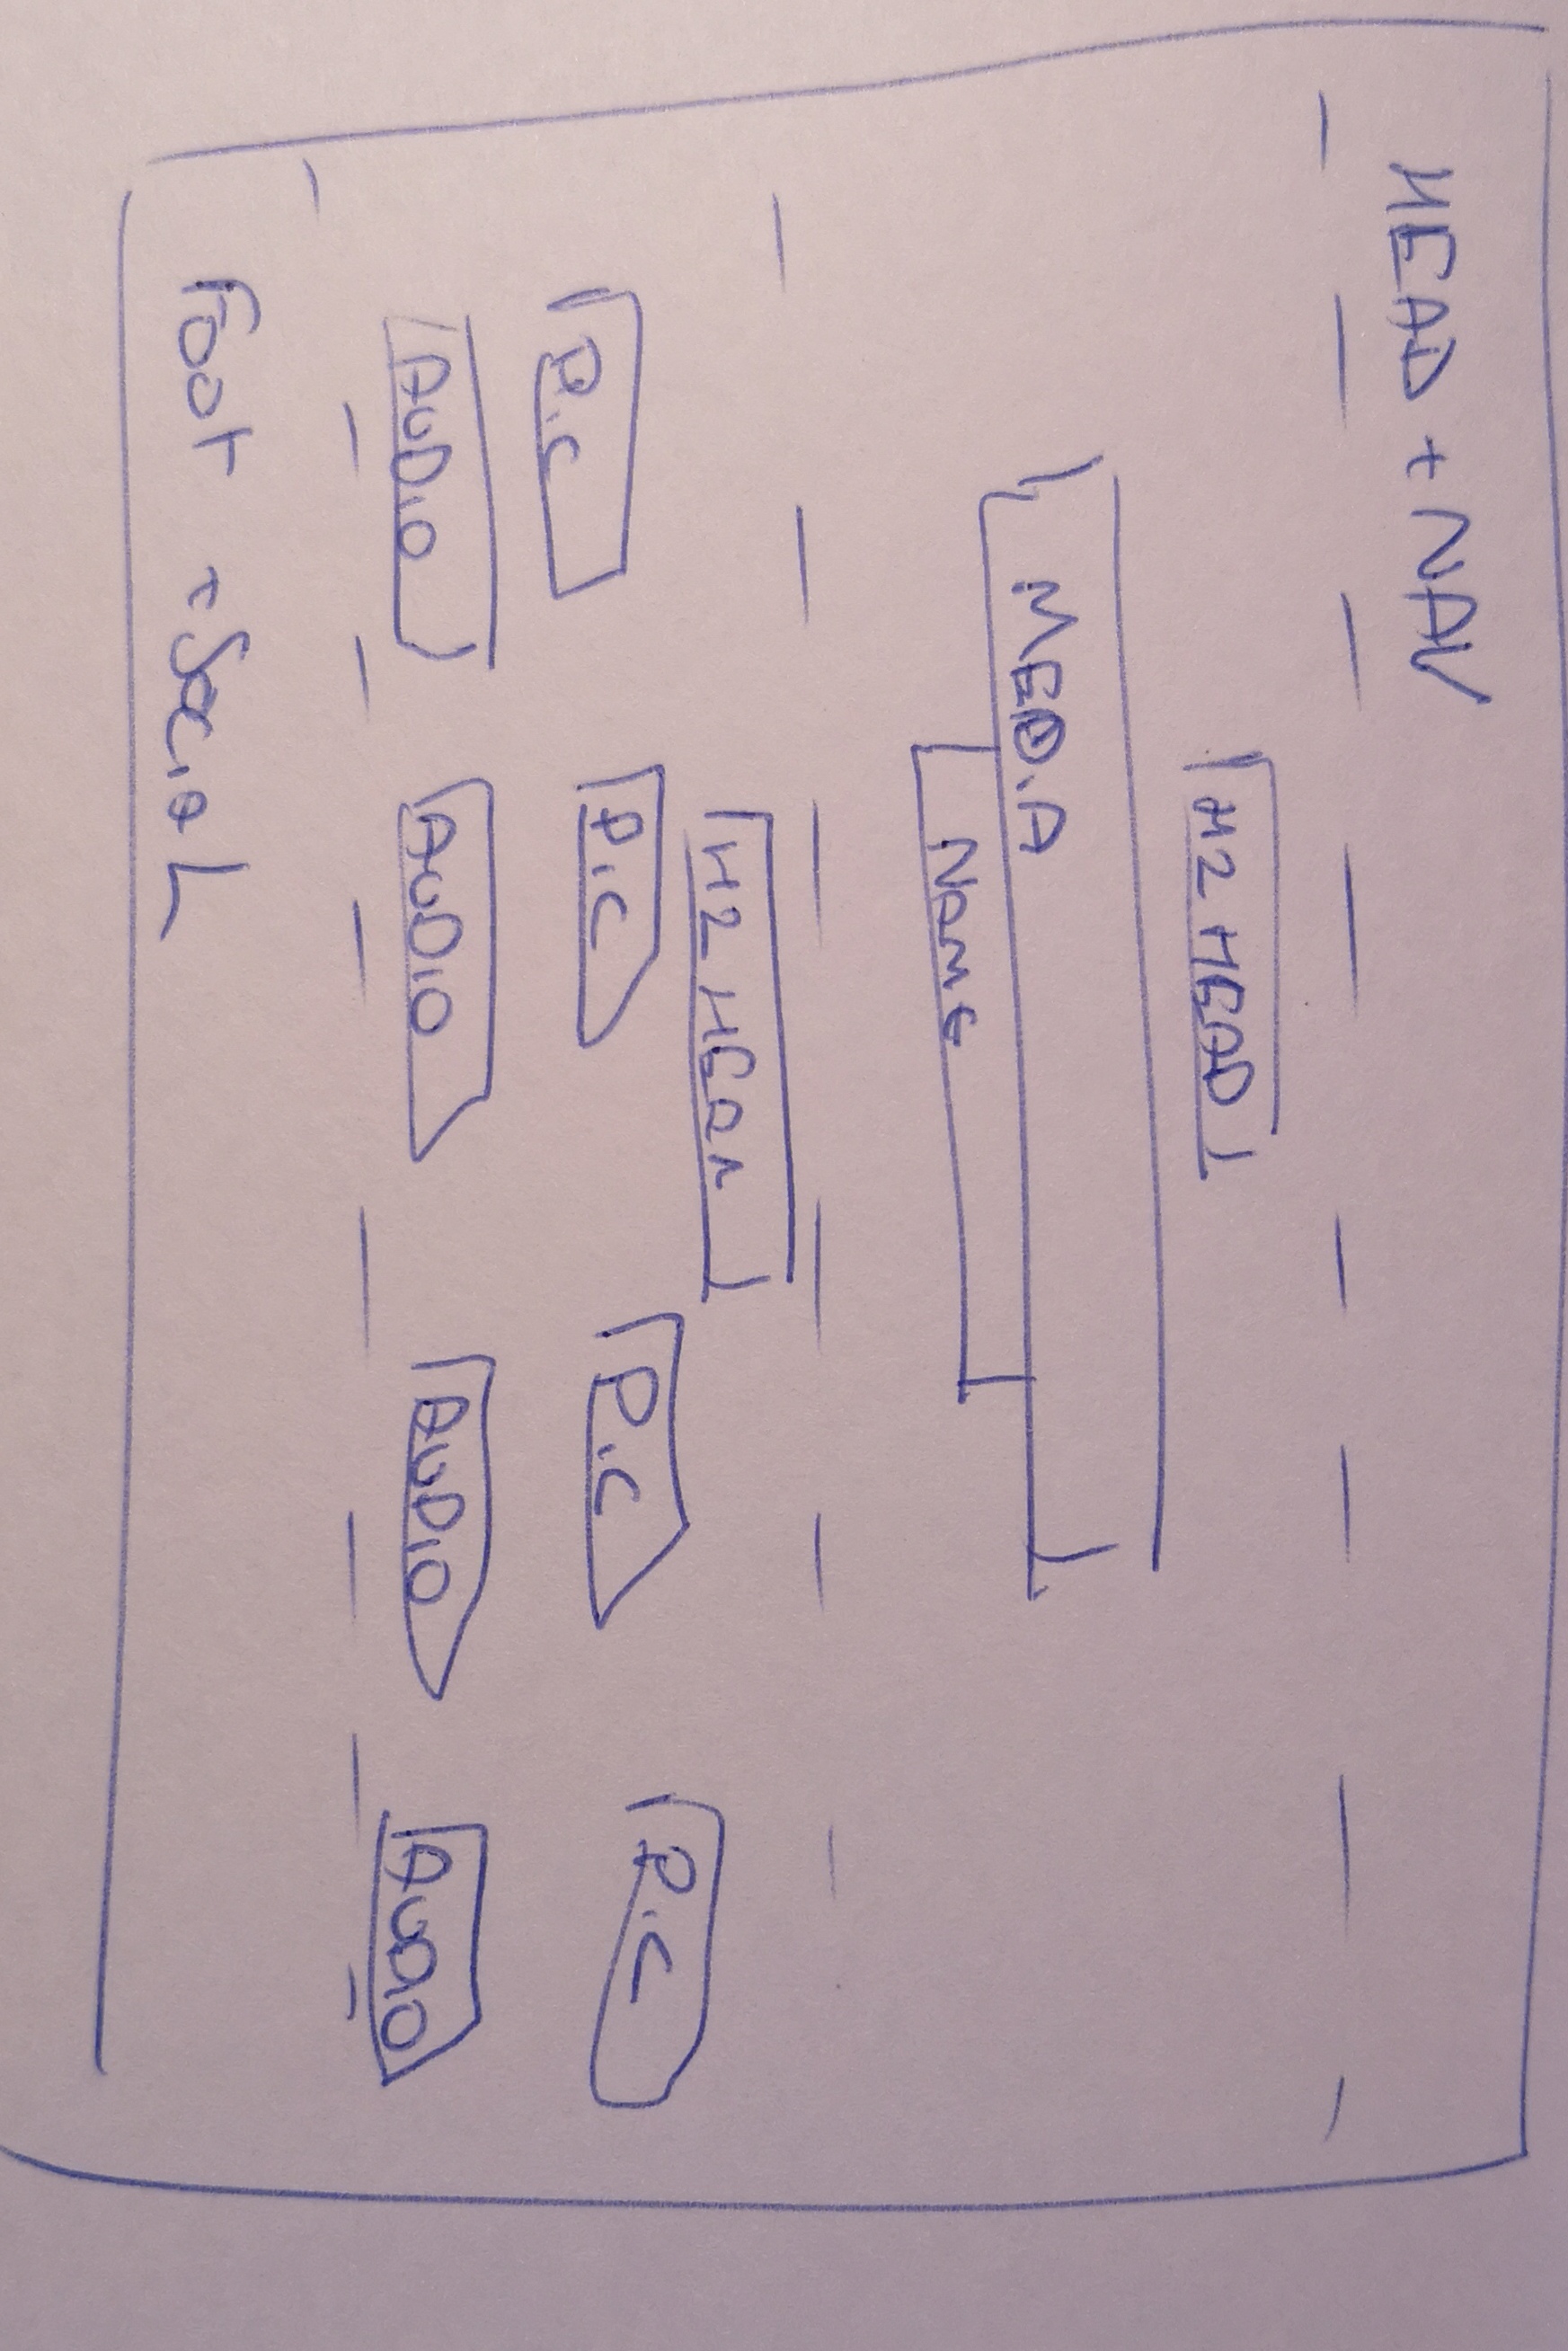 HEAD + NAV
H2 HEAD
MEDIA
NAME
H2 HEAD
PIC PIC PIC PIC
AUDIO AUDIO AUDIO AUDIO
FOOT + SOCIAL